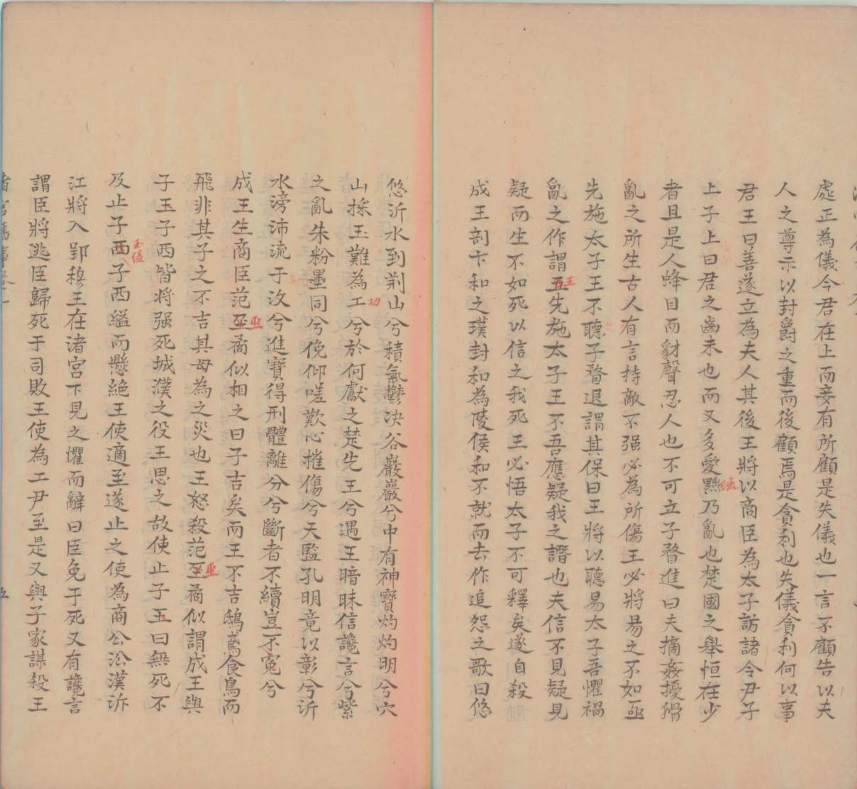 處正為儀今君在上而妾有所顧是失儀也一言不顧告以夫
人之尊示以封爵之重而後顧焉是貪利也失儀貪利何以事
君王曰善遂立為夫人其後王將以商臣為太子訪諸令尹子
上子上曰君之齒未也而又多愛黜乃亂也楚國之舉恒在少
者且是人蜂目而豺聲忍人也不可立子瞀進曰夫摘姦擾猾
亂之所生古人有言持敵不强必為所傷王必將易之不如亟
先施太子王不聽子瞀退謂其保曰王將以聽易太子吾懼禍
亂之作謂五王先施太子王不吾應疑我之譖也夫信不見疑見
疑而生不如死以信之我死王必悟太子不可釋矣遂自殺
成王剖卞和之璞封和為陵侯和不就而去作追怨之歌曰悠
悠沂水到荆山兮積氣鬱泱谷巖巖兮中有神寶灼灼明兮穴
山採玉難為工功兮於何獻之楚先王兮遇王暗昧信讒言兮紫
之亂朱粉墨同兮俛仰嗟歎心摧傷兮天監孔明竟以彰兮沂
水滂沛流于汶兮進寶得刑體離分兮斷者不續豈不寃兮
成王生商臣范至巫矞似相之曰子吉矣而王不吉鴟鳶食鳥而
飛非其子之不吉其母為之災也王怒殺范至巫矞似謂成王與
子玉子西皆將强死城濮之役王思之故使止子玉曰無死不
及止子西子西縊而懸絕王使適至遂止之使為商公沿漢泝
江將入郢穆王在渚宮下見之懼而辭曰臣免于死又有讒言
謂臣將逃臣歸死于司敗王使為工尹至是又與子家謀殺王
五